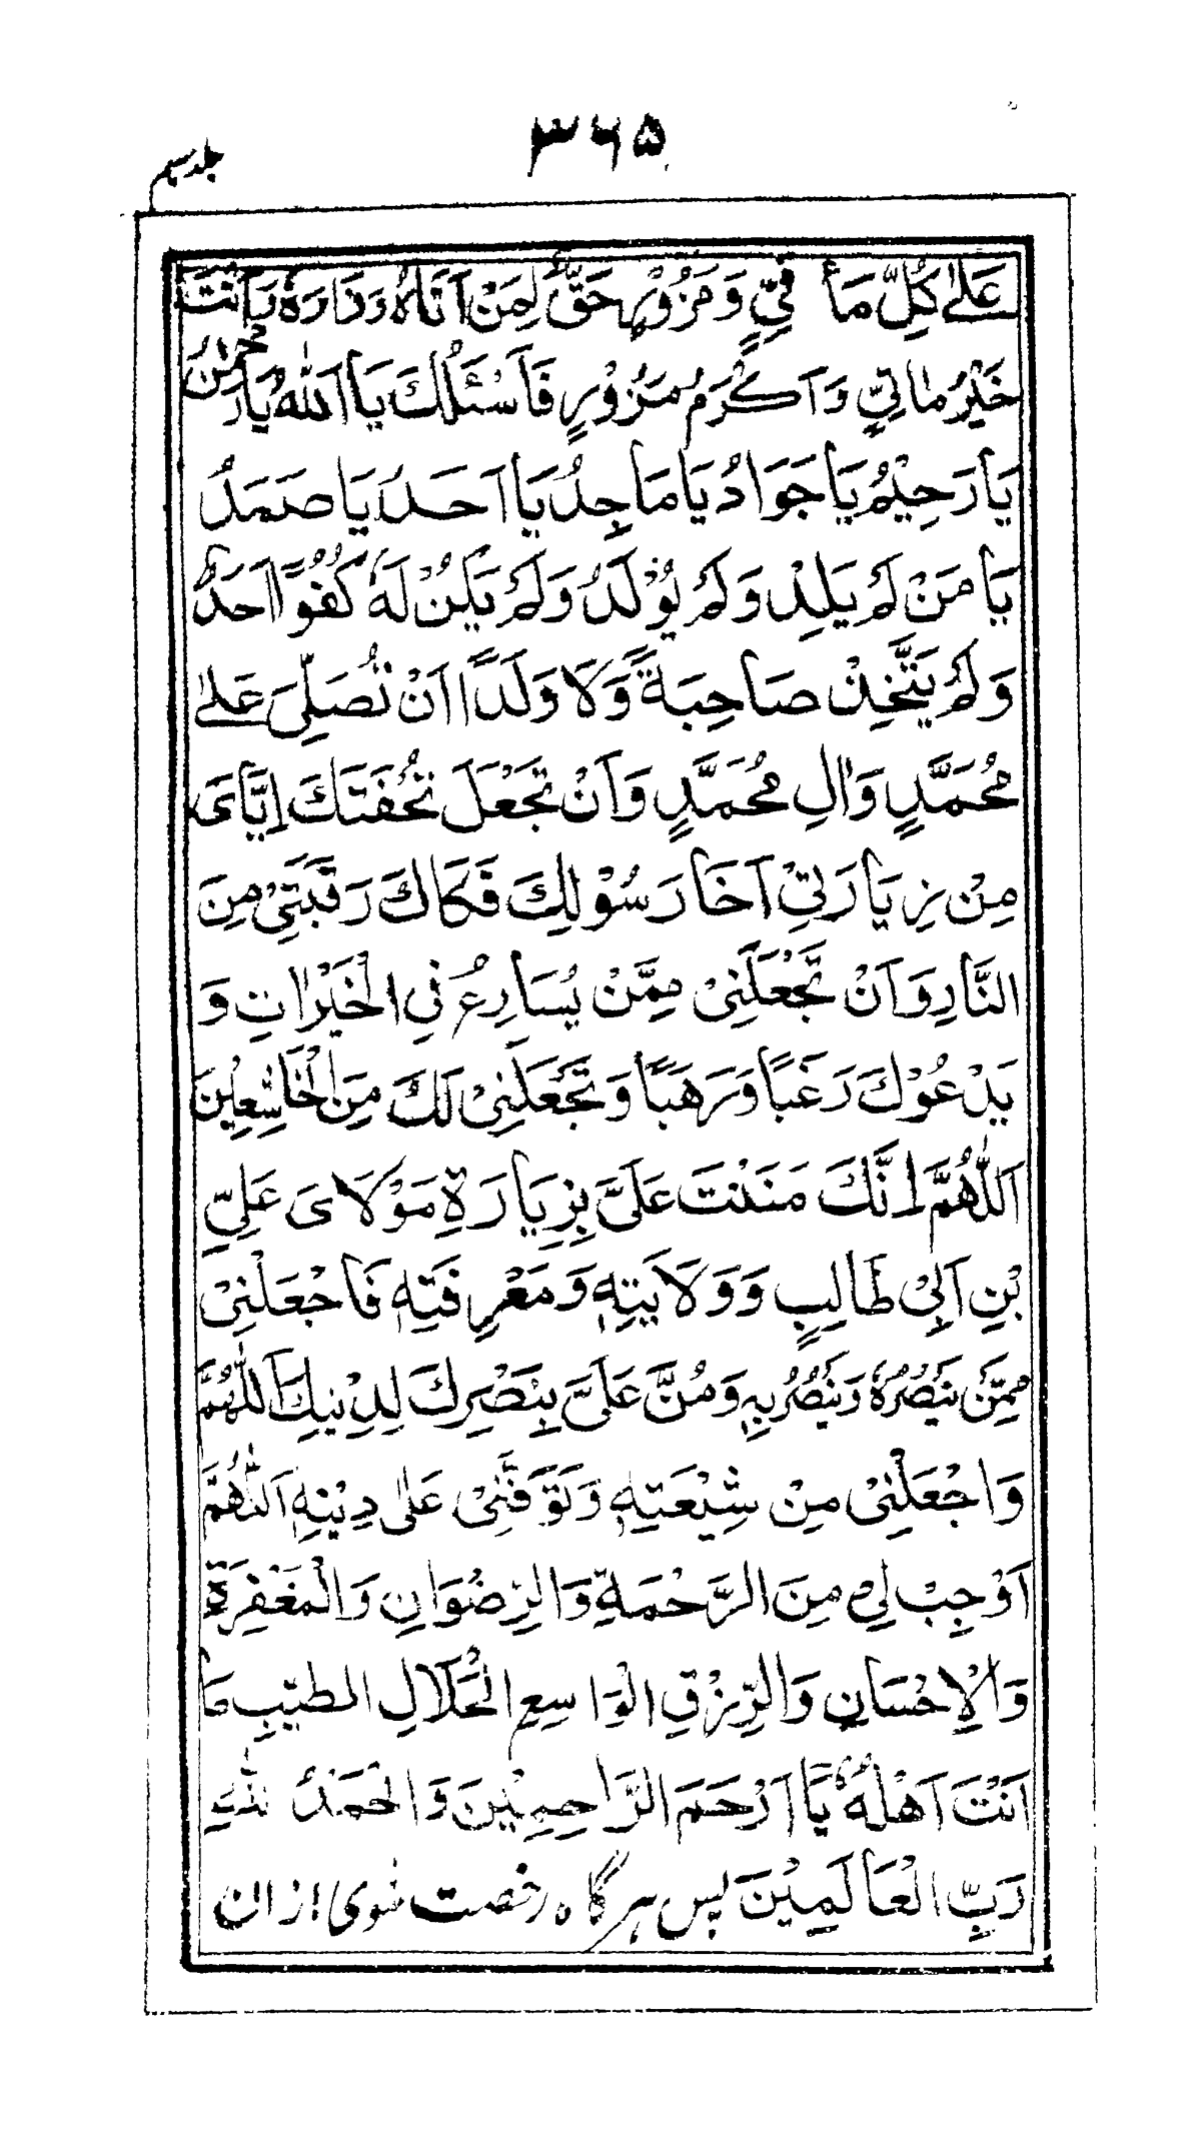 ۳۶۵
جلد سیم
عَلیٰ كُلِّ مَأ تِيٍّ وَ مَزُوْرٍ حَقٌّ لِمَنْ اَتَاهُ وَ زَارَهُ وَ اَنْتَ
خَيْرُ مٰاتِيٍّ وَ اَكْرَمُ مَزُوْرٍ فَاَسْئَلُكَ يَا اَللّٰهُ يَا رَحْمٰنُ
يَا رَحِيْمُ يَا جَوَادُ يَا مَاجِدُ يَا اَحَدُ يَا صَمَدُ
يَا مَنْ لَمْ يَلِدْ وَ لَمْ يُوْلَدْ وَ لَمْ يَكُنْ لَهُ كُفُوًا اَحَدٌ
وَ لَمْ يَتَّخِذْ صَاحِبَةً وَ لَا وَلَدًا اَنْ تُصَلِّيَ عَلیٰ
مُحَمَّدٍ وَ اٰلِ مُحَمَّدٍ وَ اَنْ تَجْعَلَ تُحْفَتَكَ اِيَّايَ
مِنْ زِيَارَتِيْ اَخَا رَسُوْلِكَ فَكَاكَ رَقَبَتِيْ مِنَ
النَّارِ وَ اَنْ تَجْعَلَنِيْ مِمَّنْ يُسَارِعُ فِي الْخَيْرَاتِ وَ
يَدْعُوْكَ رَغَبًا وَ رَهَبًا وَ تَجْعَلَنِيْ لَكَ مِنَ الْخَاشِعِيْنَ
اَللّٰهُمَّ اِنَّكَ مَنَنْتَ عَلَيَّ بِزِيَارَةِ مَوْلَايَ عَلِيِّ
بْنِ اَبِيْ طَالِبٍ وَ وَلَايَتِهٖ وَ مَعْرِفَتِهٖ فَاجْعَلْنِيْ
مِمَّنْ يَنْصُرُهُ وَ يَنْصُرُ بِهٖ وَ مُنَّ عَلَيَّ بِنَصْرِكَ لِدِيْنِكَ اَللّٰهُمَّ
وَ اجْعَلْنِيْ مِنْ شِيْعَتِهٖ وَ تَوَفَّنِيْ عَلیٰ دِيْنِهٖ اَللّٰهُمَّ
اَوْجِبْ لِيْ مِنَ الرَّحْمَةِ وَ الرِّضْوَانِ وَ الْمَغْفِرَةِ
وَ الْاِحْسَانِ وَ الرِّزْقِ الْوَاسِعِ الْحَلَالِ الطَّيِّبِ مَا
اَنْتَ اَهْلُهُ يَا اَرْحَمَ الرَّاحِمِيْنَ وَ الْحَمْدُ لِلّٰهِ
رَبِّ الْعَالَمِيْنَ پس هر گاه رخصت شوی از ان